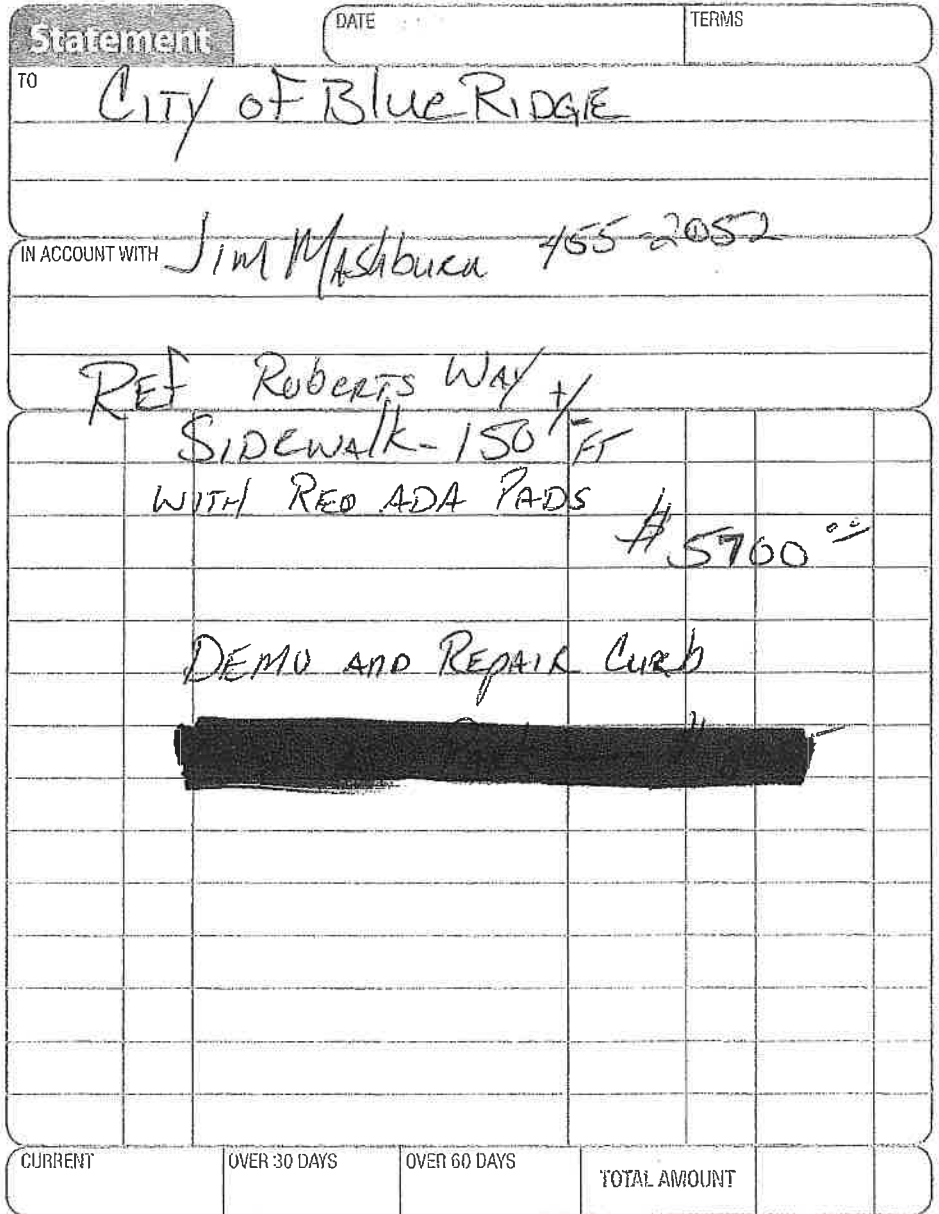 Statement
DATE
TERMS
TO
CITY OF Blue RIDGE
IN ACCOUNT WITH Jim MAShburn 455-2052
REf Roberts WAY
SIDEWAlK- 150 +/- FT
WITH RED ADA PADS
$ 5700 00
DEMO AND REPAIR Curb
CURRENT
OVER 30 DAYS
OVER 60 DAYS
TOTAL AMOUNT